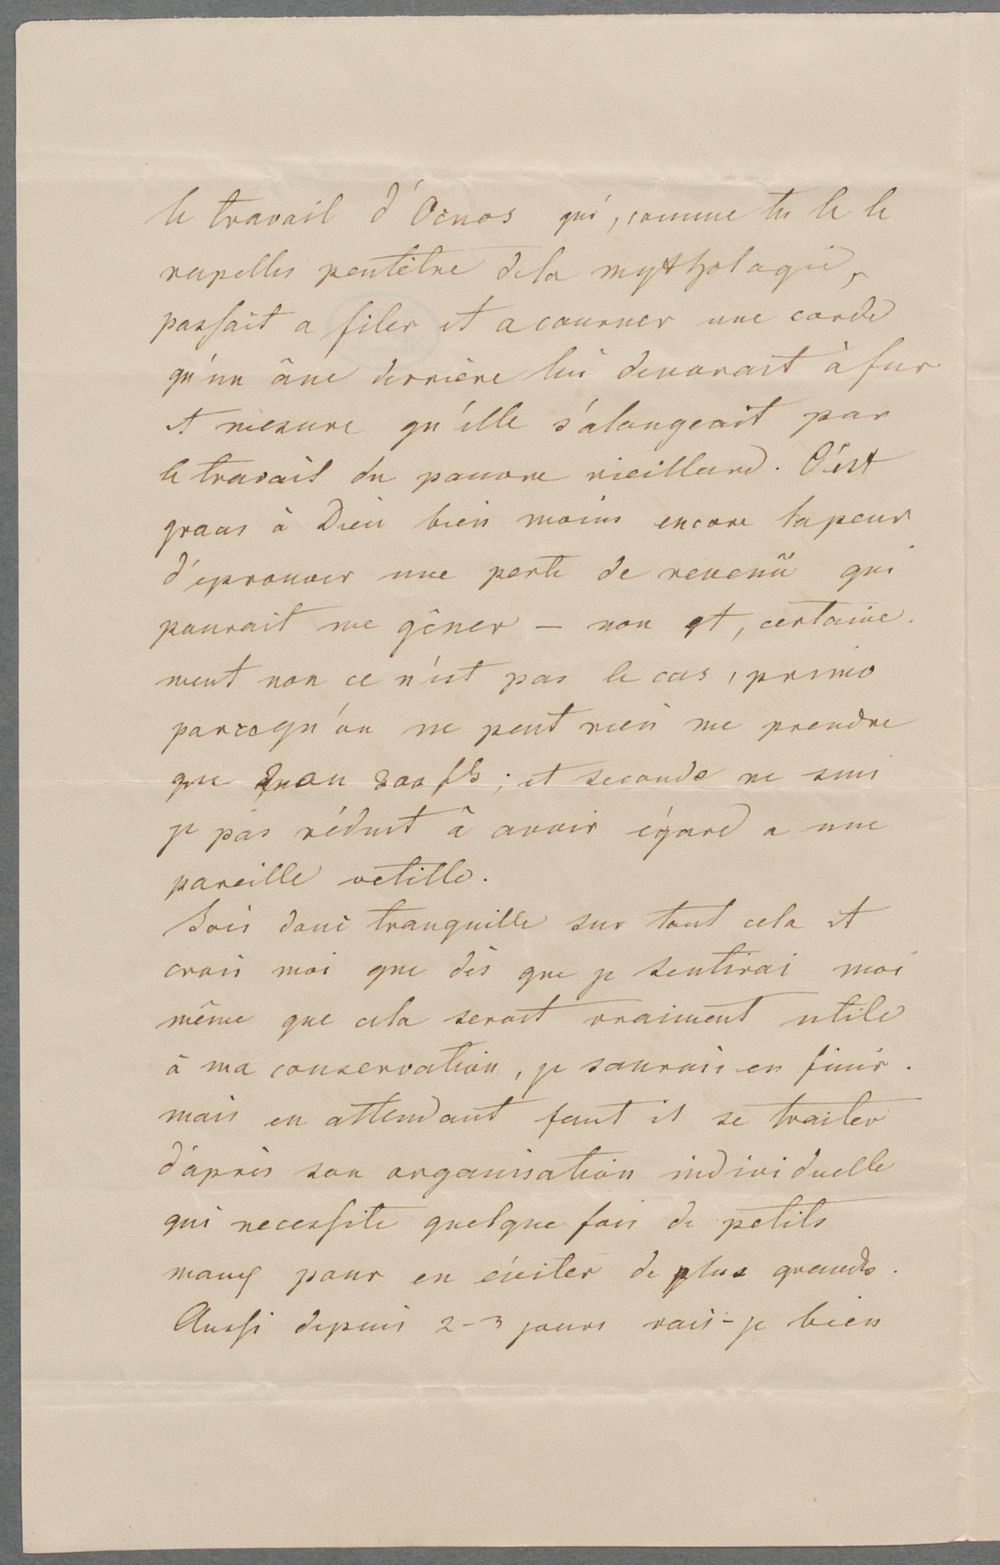 le travail d'Ocnos qui, comme tu le le
rapelles peutêtre dela mythologie,
passait a filer et a tourner une corde
qu'un âne derrière lui devorait à fur
et mesure qu'elle s'alongeait par
le travail du pauvre vieillard. C'est
graas à Dieu bien moins encore la peur
d'eprouver une perte de revenü qui
pourait me gêner – non et, certaine-
ment non ce n'est pas le cas, primo
parcequ'on ne peut rien me prendre
que mon fls; et secondo ne suis
je pas réduit à avoir égard a une
pareille vetille.
Sois donc tranquille sur tout cela et
crois moi que dès que je sentirai moi
même que cela serait vraiment utile
à ma conservation, je saurais en finir.
mais en attendant faut il se traiter
d'après son organisation individuelle
qui necessite quelque fois de petits
maux pour en éviter de plus grands.
Aussi depuis 2-3 jours vais-je bien